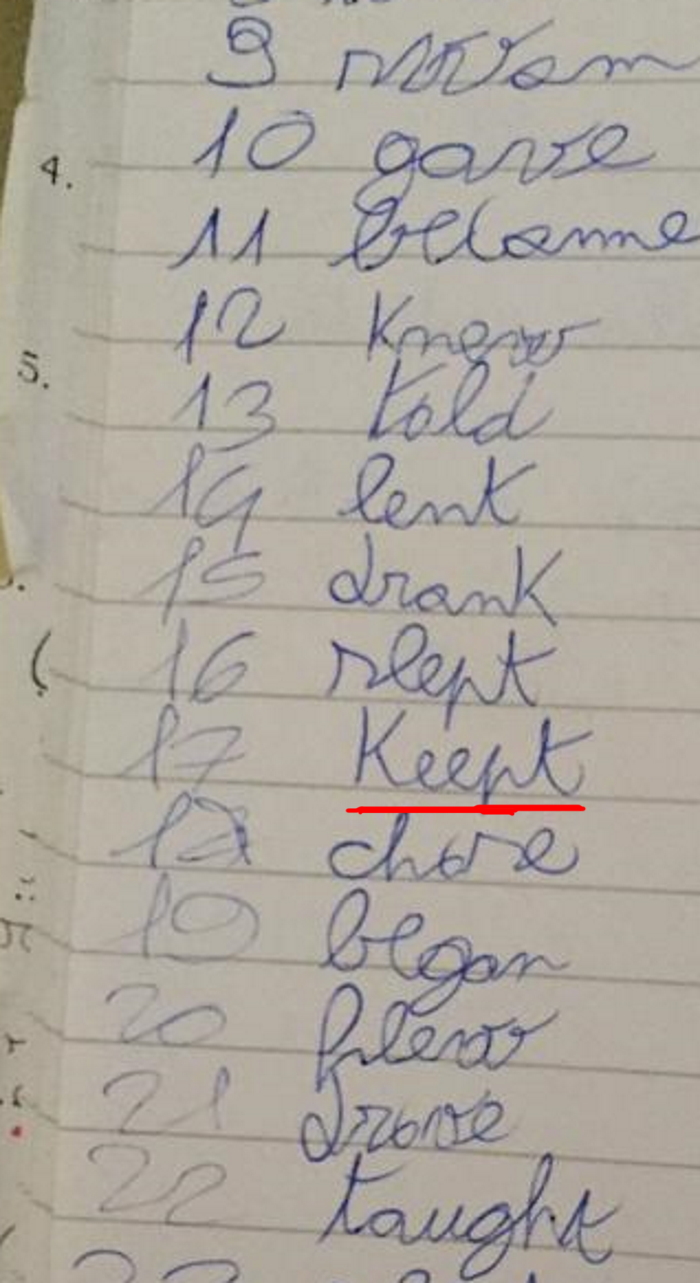 9 swam
10 gave
4.
11 became
12 Knew
5.
13 told
14 lent
15 drank
16 slept
17 Keept
18 chose
19 began
20 flew
21 drove
22 taught